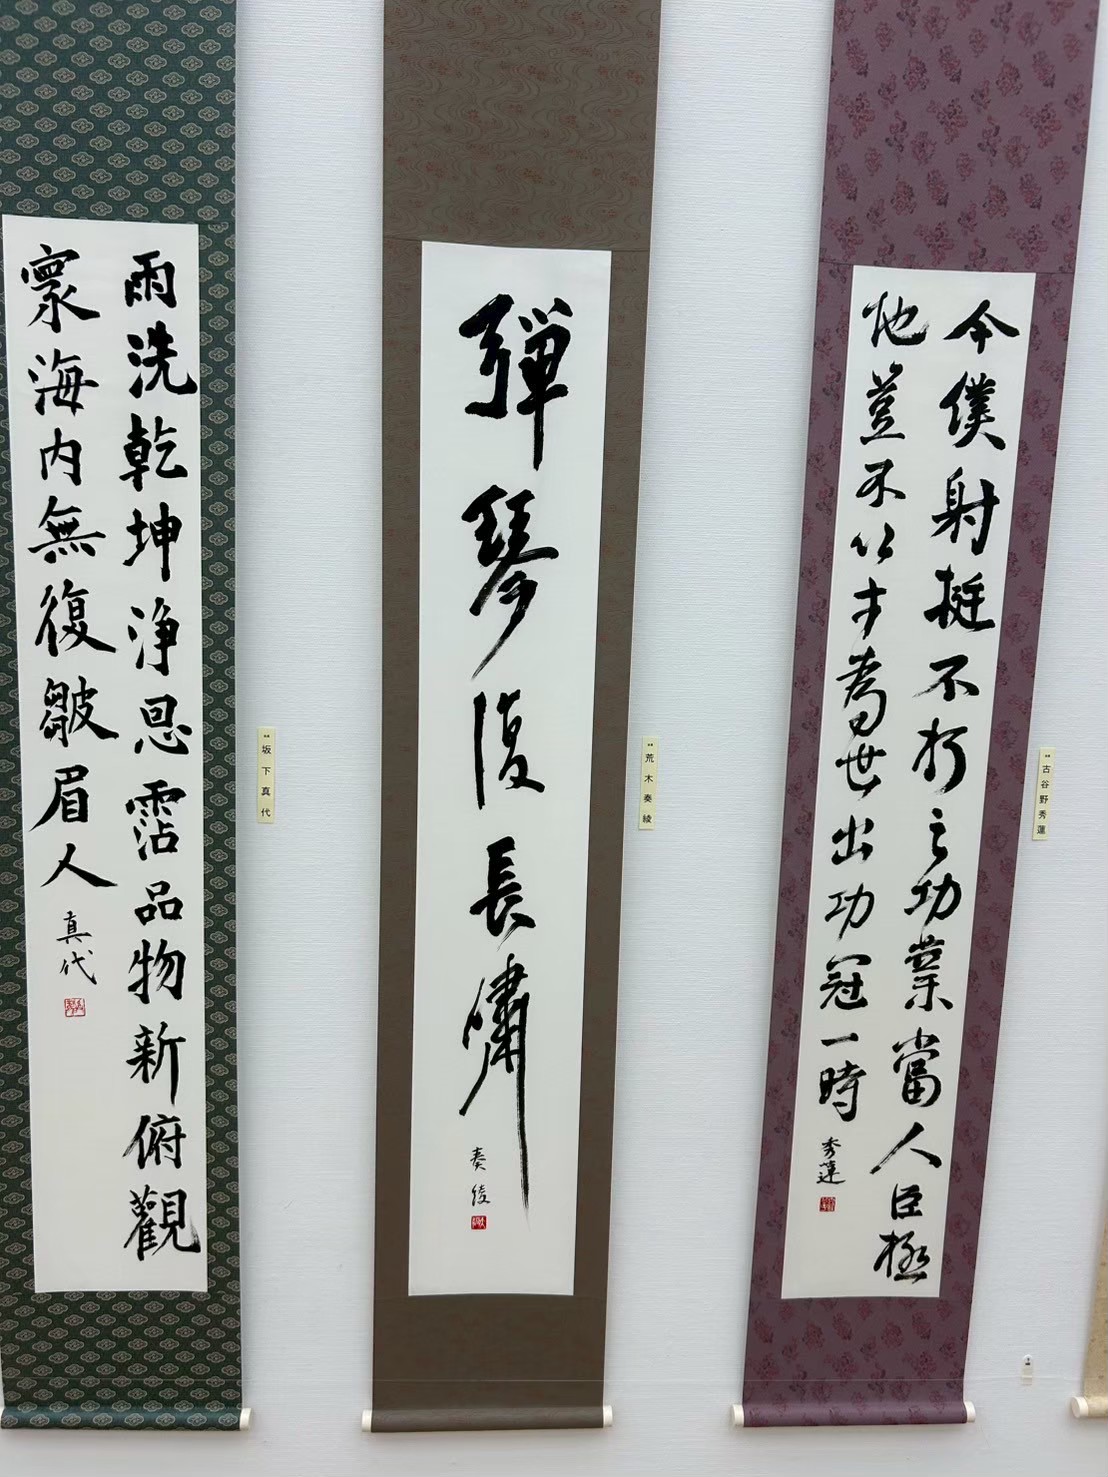 今僕射挺不朽之功業當人臣極
地豈不以才為世出功冠一時
秀蓮
古谷野秀蓮
弾琴復長嘯
奏綾
荒木奏綾
雨洗乾坤浄恩霑品物新俯觀
寰海内無復皺眉人
真代
坂下真代